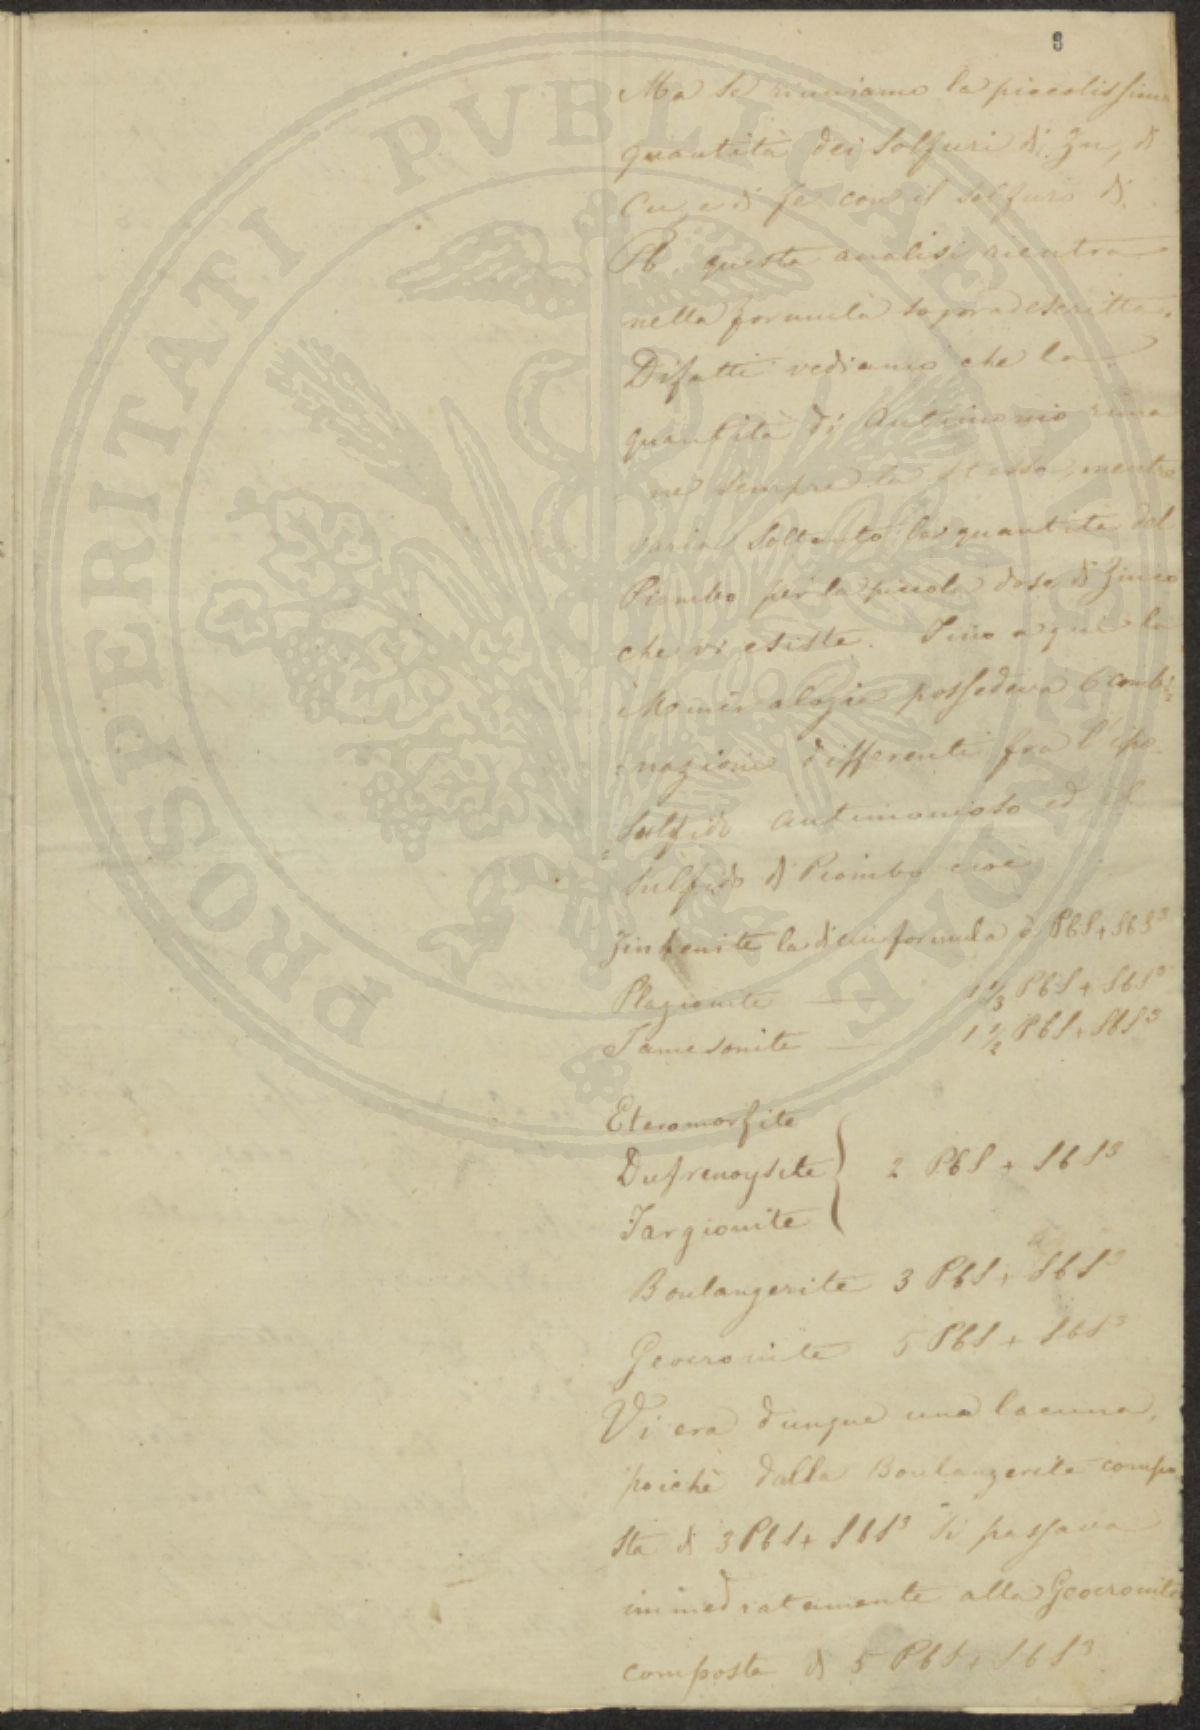 8
Ma se riuniamo la piccolissima
quantità dei Solfuri di Zn, di
Cu, e di Fe con il solfuro di
Pb questa analisi rientra
nella formula sopradescritta.
Difatti vediamo che la
quantità di Antimonio rima
-ne sempre la stessa, mentre
varia soltanto la quantità del
Piombo per la piccola dose di Zinco
che vi esiste. Fino a qui la
Mineralogia possedeva 6 combi-
-nazioni differenti fra l'ipo-
Sulfido antimonioso ed il
Sulfido di Piombo cioè
Zinkenite la di cui formula è PbS + SbS³
Plagionite — 1 1/3 PbS + SbS³
Jamesonite — 1 1/2 PbS + SbS³
Eteromorfite
Dufrenoysite } 2 PbS + SbS³
Targionite
Boulangerite 3 PbS + SbS³
Geocronite 5 PbS + SbS³
Vi era dunque una lacuna,
poichè dalla Boulangerite compo
sta di 3 PbS + SbS³ si passava
immediatamente alla Geocronite
composta di 5 PbS + SbS³
PROSPERITATI PVBLICAE AVGENDAE